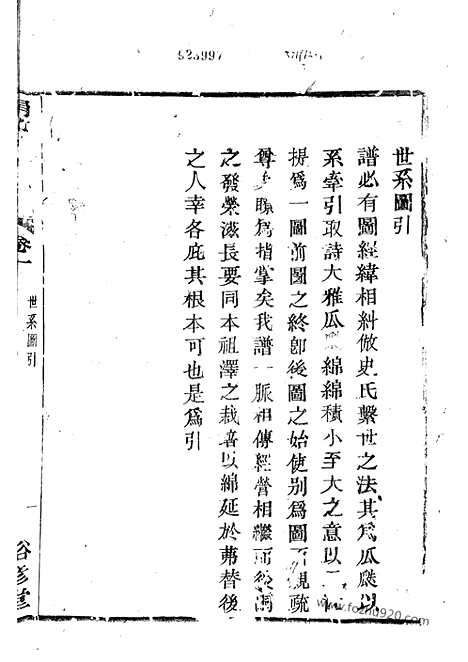 世系圖引
譜必有圖經緯相糾倣史氏繫世之法其爲瓜瓞以
系牽引取詩大雅瓜瓞綿綿積小至大之意以二
提爲一圖前圖之終卽後圖之始使別爲圖而親疏
尊 聯爲指掌矣我譜一脈相傳經營相繼而後
之發榮滋長要同本祖澤之栽培以綿延於弗替後
之人幸各庇其根本可也是爲引
卷一
世系圖引
一
裕彥堂
523997
www.fozhu920.com